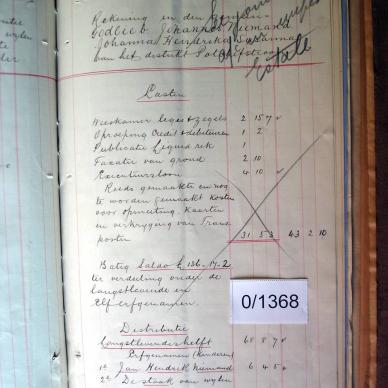 Rekening in den
Godlieb Johannes Niemand
Johanna Hendrika Susanna
van het distrikt Potchefstroom
Estate
Lasten
Weeskamer leges & zegels 2 15 7
Oproeping Credit & debiteuren 1 2
Publicatie Liquid rek 1
Taxatie van grond 2 10
Executeursloon 4 10
Reeds gemaakte en nog
te worden gemaakt kosten
voor opmeting, Kaarten
en verkryging van Trans
kosten 31 5 3 43 2 10
Batig Saldo £ 136.17.2
ter verdeeling onder de
langstlevende en
Elf erfgenamen.
0/1368
Distributie
Langstlevende helft 68 8 7
Erfgenamen (Kinderen)
1e Jan Hendrik Niemand 6 4 5
2e De staak van wylen